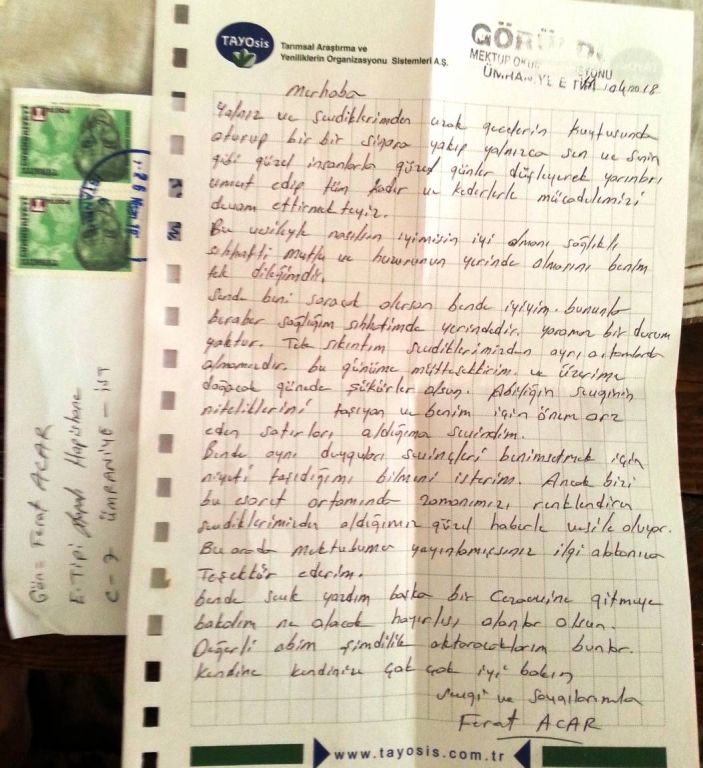 TAYOsis
Tarımsal Araştırma ve
Yeniliklerin Organizasyonu Sistemleri A.Ş.
GÖRÜLDÜ
MEKTUP OKUMA KOMİSYONU
ÜMRANİYE E TİPİ
Merhaba
Yalnız ve sevdiklerimden uzak gecelerin kuytusunda
oturup bir bir sigara yakıp yalnızca sen ve senin
gibi güzel insanlarla güzel günler düşleyerek yarınları
umut edip tüm kadır ve kederlerle mücadelemizi
devam ettirmekteyiz.
Bu vesileyle nasılsın iyimisin iyi olmanı sağlıklı
sıhhatli mutlu ve huzurunun yerinde olmasını benim
tek dileğimdir.
Sende beni soracak olursan bende iyiyim. bununla
beraber sağlığım sıhhatimde yerindedir. yaramaz bir durum
yoktur. Tek sıkıntım sevdiklerimizden ayrı ortamlarda
olmamızdır. bu günüme müteşekkirim. ve üzerime
doğacak günede şükürler olsun. Abiliğin sevginin
niteliklerini taşıyan ve benim için önem arz
eden satırları aldığıma sevindim.
Bende aynı duyguları sevinçleri benimsetmek için
niyeti taşıdığımı bilmeni isterim. Ancak bizi
bu esaret ortamında zamanımızı renklendiren
sevdiklerimizden aldığımız güzel haberle vesile oluyor.
Bu arada mektubumu yayınlamışsınız ilgi alakanıza
Teşekkür ederim.
bende sevk yazdım başka bir Cezaevine gitmeye
bakalım ne olacak hayırlısı olanlar olsun.
Değerli abim şimdilik aktaracaklarım bunlar.
kendine kendinize çok çok iyi bakın
sevgi ve saygılarımla
Ferat ACAR
www.tayosis.com.tr
Gön: Ferat ACAR
E-Tipi Hapishane
C-7 ÜMRANİYE - İST